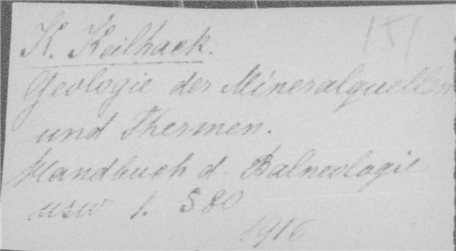 K. Keilhack. 151
Geologie der Mineralquellen
und Thermen.
Handbuch d. Balneologie
usw 1. S 80
1916